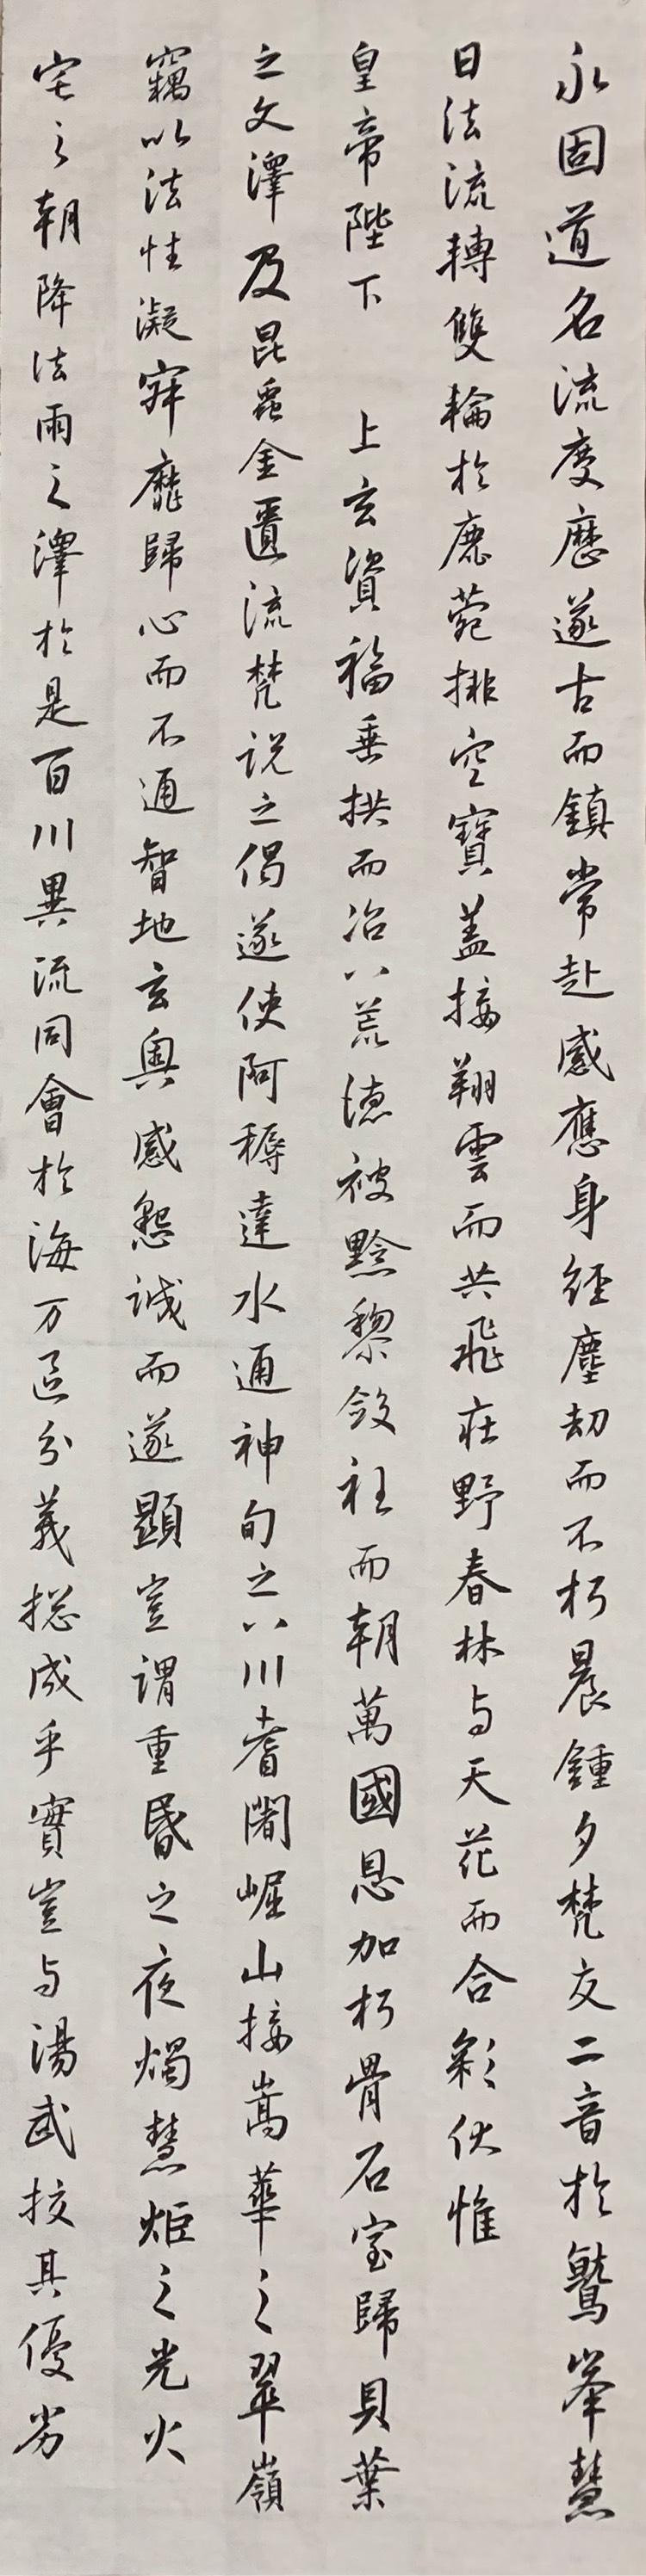 永固道名流度歷遂古而鎮常赴感應身經塵劫而不朽晨鍾夕梵交二音於鷲峯慧
日法流轉雙輪於鹿菀排空寶蓋接翔雲而共飛莊野春林与天花而合彩伏惟
皇帝陛下　上玄資福垂拱而治八荒德被黔黎斂衽而朝萬國恩加朽骨石室歸貝葉
之文澤及昆虫金匱流梵說之偈遂使阿耨達水通神甸之八川耆闍崛山接嵩華之翠嶺
竊以法性凝寂靡歸心而不通智地玄奧感懇誠而遂顯豈謂重昏之夜燭慧炬之光火
宅之朝降法雨之澤於是百川異流同會於海万區分義揔成乎實豈与湯武挍其優劣